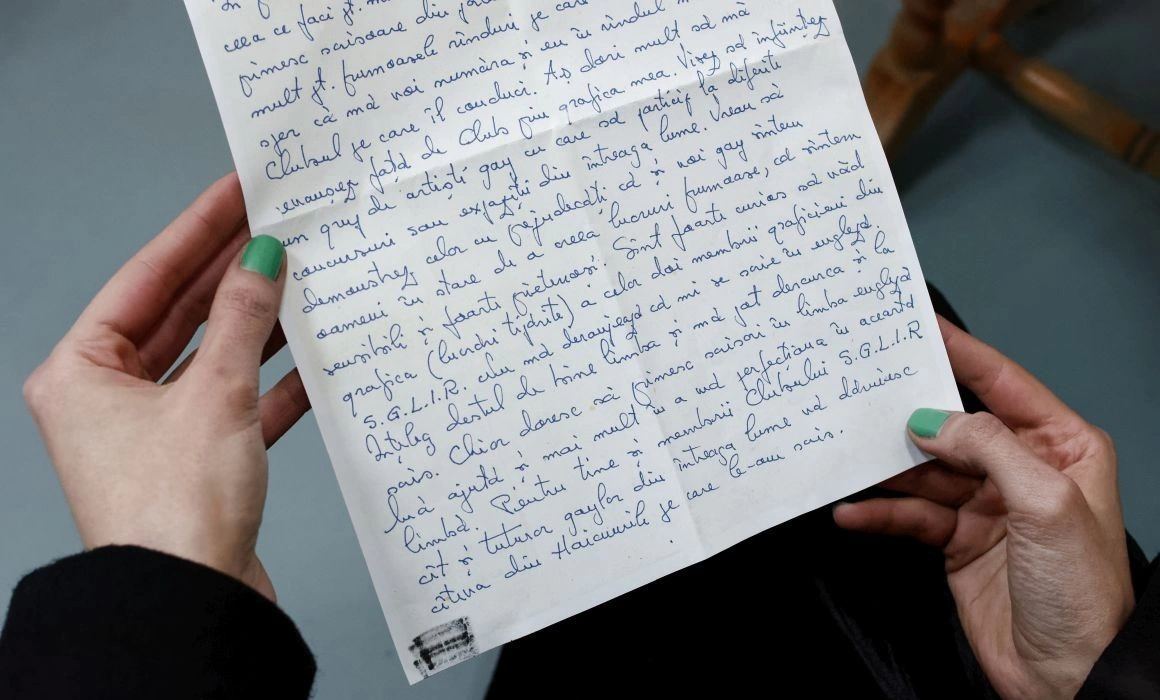 ceea ce faci pt.
primesc scrisoare din
mult pt. frumoasele rînduri pe care
sper că mă voi număra și eu în rîndul
Clubul pe care îl conduci. Aș dori mult să mă
revanșez față de Club prin grafica mea. Visez să înființez
un grup de artiști gay cu care să particip la diferite
concursuri sau expoziții din întreaga lume. Vreau să
demonstrez celor cu prejudecăți că și noi gay sîntem
oameni în stare de a creea lucruri frumoase, că sîntem
sensibili și foarte prietenoși. Sînt foarte curios să văd
grafica (lucrări tipărite) a celor doi membrii graficieni din
S.G.L.I.R. Nu mă deranjează că mi se scrie în engleză.
Înțeleg destul de bine limba și mă pot descurca și la
scris. Chiar doresc să primesc scrisori în limba engleză
mă ajută și mai mult în a mă perfecționa în această
limbă. Pentru tine și membrii Clubului S.G.L.I.R
cît și tuturor gaylor din întreaga lume vă dăruiesc
cîteva din Haicuurile pe care le-am scris.